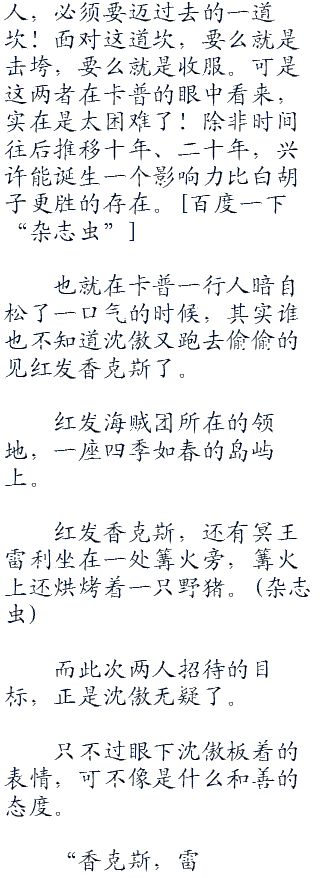 人，必须要迈过去的一道
坎！面对这道坎，要么就是
击垮，要么就是收服。可是
这两者在卡普的眼中看来，
实在是太困难了！除非时间
往后推移十年、二十年，兴
许能诞生一个影响力比白胡
子更胜的存在。[百度一下
“杂志虫”]
也就在卡普一行人暗自
松了一口气的时候，其实谁
也不知道沈傲又跑去偷偷的
见红发香克斯了。
红发海贼团所在的领
地，一座四季如春的岛屿
上。
红发香克斯，还有冥王
雷利坐在一处篝火旁，篝火
上还烘烤着一只野猪。(杂志
虫)
而此次两人招待的目
标，正是沈傲无疑了。
只不过眼下沈傲板着的
表情，可不像是什么和善的
态度。
“香克斯，雷